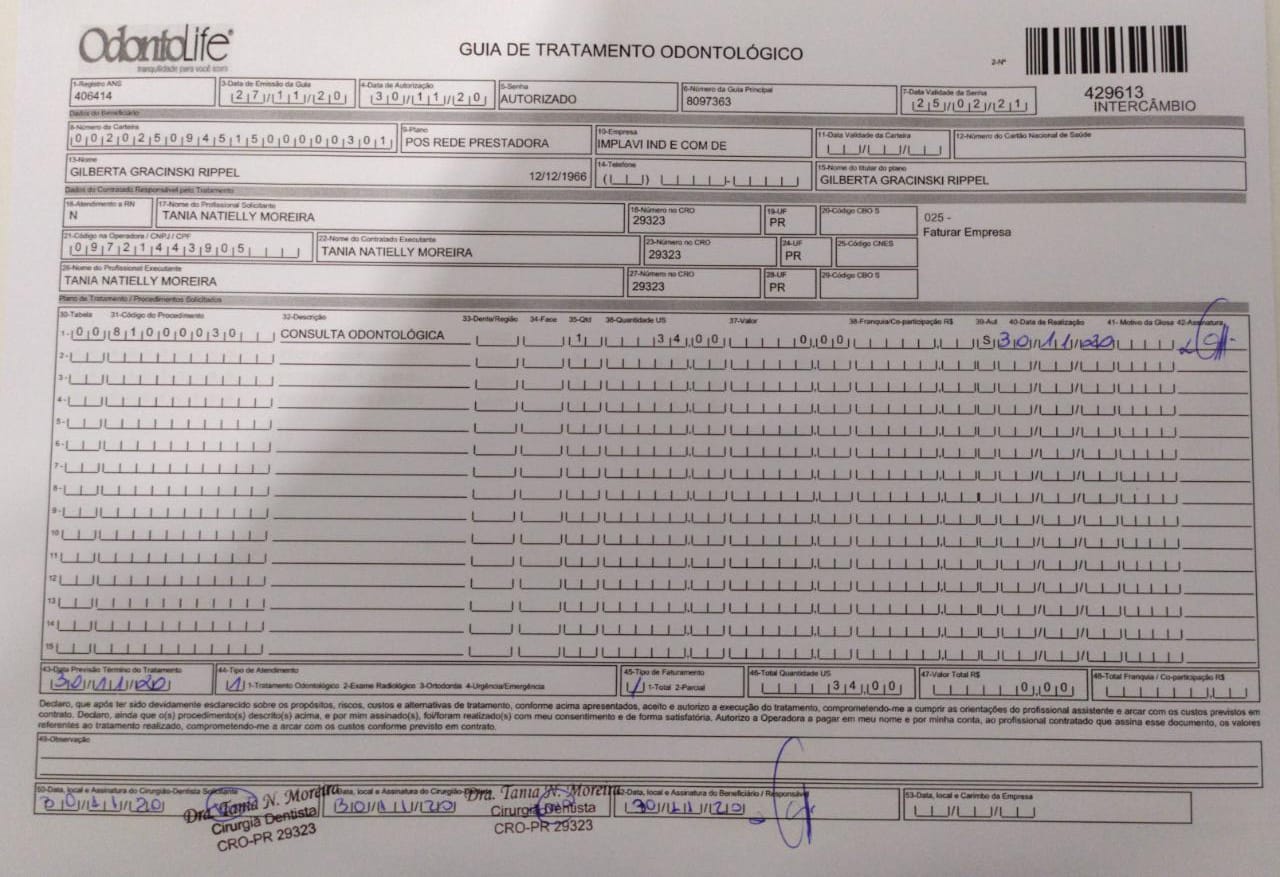 OdontoLife®
tranquilidade para você sorrir
GUIA DE TRATAMENTO ODONTOLÓGICO
2-Nº
429613
INTERCÂMBIO
1-Registro ANS
406414
3-Data de Emissão da Guia
27/11/20
4-Data de Autorização
30/11/20
5-Senha
AUTORIZADO
6-Número da Guia Principal
8097363
7-Data Validade da Senha
25/02/21
Dados do Beneficiário
8-Número da Carteira
00202509451500000301
9-Plano
POS REDE PRESTADORA
10-Empresa
IMPLAVI IND E COM DE
11-Data Validade da Carteira
12-Número do Cartão Nacional de Saúde
13-Nome
GILBERTA GRACINSKI RIPPEL 12/12/1966
14-Telefone
15-Nome do titular do plano
GILBERTA GRACINSKI RIPPEL
Dados do Contratado Responsável pelo Tratamento
16-Atendimento a RN
N
17-Nome do Profissional Solicitante
TANIA NATIELLY MOREIRA
18-Número no CRO
29323
19-UF
PR
20-Código CBO S
025 -
Faturar Empresa
21-Código na Operadora / CNPJ / CPF
09721443905
22-Nome do Contratado Executante
TANIA NATIELLY MOREIRA
23-Número no CRO
29323
24-UF
PR
25-Código CNES
26-Nome do Profissional Executante
TANIA NATIELLY MOREIRA
27-Número no CRO
29323
28-UF
PR
29-Código CBO S
Plano de Tratamento / Procedimentos Solicitados
30-Tabela 31-Código do Procedimento 32-Descrição 33-Dente/Região 34-Face 35-Qtd 36-Quantidade US 37-Valor 38-Franquia/Co-participação R$ 39-Aut 40-Data de Realização 41- Motivo da Glosa 42-Assinatura
1- 00 81000030 CONSULTA ODONTOLÓGICA 1 34,00 0,00 S 30/11/20
2-
3-
4-
5-
6-
7-
8-
9-
10
11
12
13
14
15
43-Data Previsão Término do Tratamento
30/11/20
44-Tipo de Atendimento
1 1-Tratamento Odontológico 2-Exame Radiológico 3-Ortodontia 4-Urgência/Emergência
45-Tipo de Faturamento
1 1-Total 2-Parcial
46-Total Quantidade US
34,00
47-Valor Total R$
0,00
48-Total Franquia / Co-participação R$
Declaro, que após ter sido devidamente esclarecido sobre os propósitos, riscos, custos e alternativas de tratamento, conforme acima apresentados, aceito e autorizo a execução do tratamento, comprometendo-me a cumprir as orientações do profissional assistente e arcar com os custos previstos em
contrato. Declaro, ainda que o(s) procedimento(s) descrito(s) acima, e por mim assinado(s), foi/foram realizado(s) com meu consentimento e de forma satisfatória. Autorizo a Operadora a pagar em meu nome e por minha conta, ao profissional contratado que assina esse documento, os valores
referentes ao tratamento realizado, comprometendo-me a arcar com os custos conforme previsto em contrato.
49-Observação
50-Data, local e Assinatura do Cirurgião-Dentista Solicitante
30/11/20
Dra. Tania N. Moreira
Cirurgiã Dentista
CRO-PR 29323
Data, local e Assinatura do Cirurgião-Dentista
30/11/20
Dra. Tania N. Moreira
Cirurgiã Dentista
CRO-PR 29323
52-Data, local e Assinatura do Beneficiário / Responsável
30/11/20
53-Data, local e Carimbo da Empresa